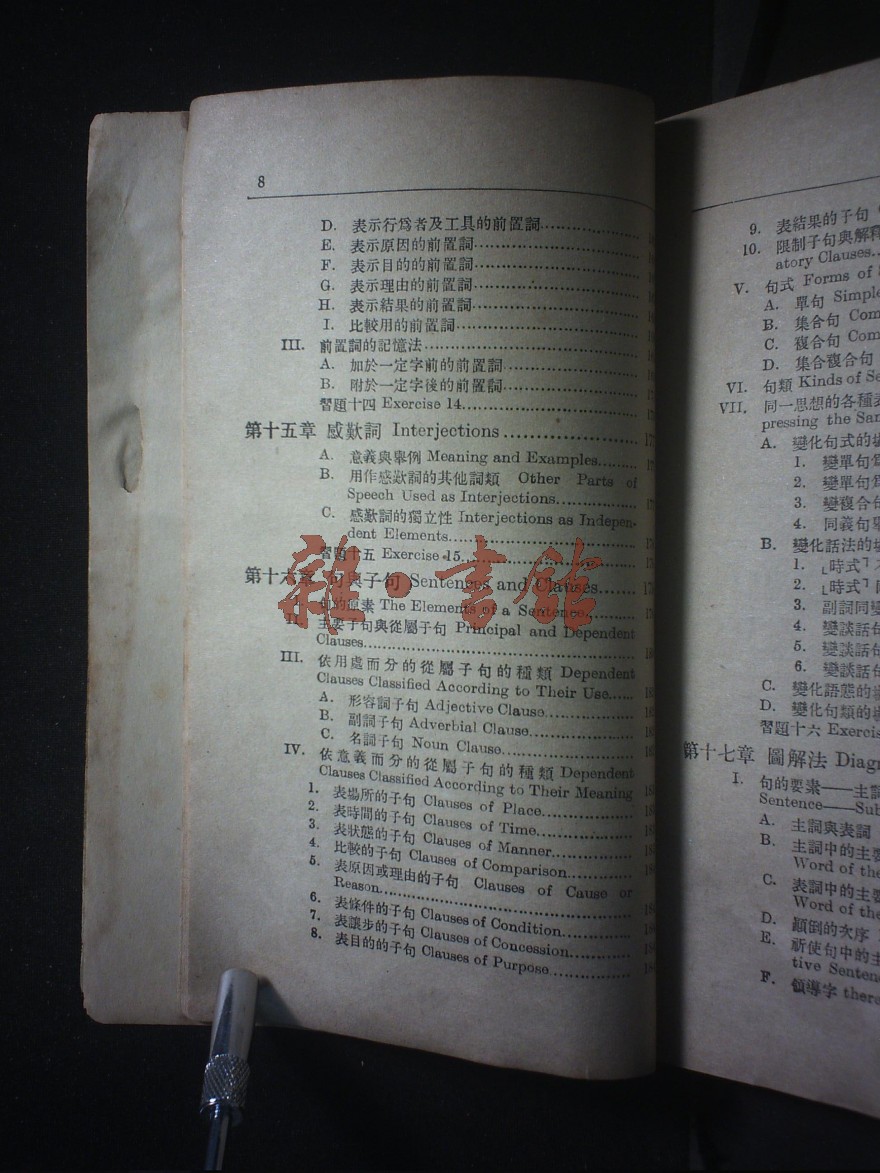 8
D. 表示行爲者及工具的前置詞
E. 表示原因的前置詞
F. 表示目的的前置詞
G. 表示理由的前置詞
H. 表示結果的前置詞
I. 比較用的前置詞
III. 前置詞的記憶法
A. 加於一定字前的前置詞
B. 附於一定字後的前置詞
習題十四 Exercise 14
第十五章 感歎詞 Interjections
A. 意義與舉例 Meaning and Examples
B. 用作感歎詞的其他詞類 Other Parts of
Speech Used as Interjections
C. 感歎詞的獨立性 Interjections as Indepen-
dent Elements
習題十五 Exercise 15
第十六章 句與子句 Sentences and Clauses
I. 句的原素 The Elements of a Sentence
II. 主要子句與從屬子句 Principal and Dependent
Clauses
III. 依用處而分的從屬子句的種類 Dependent
Clauses Classified According to Their Use
A. 形容詞子句 Adjective Clause
B. 副詞子句 Adverbial Clause
C. 名詞子句 Noun Clause
IV. 依意義而分的從屬子句的種類 Dependent
Clauses Classified According to Their Meaning
1. 表場所的子句 Clauses of Place
2. 表時間的子句 Clauses of Time
3. 表狀態的子句 Clauses of Manner
4. 比較的子句 Clauses of Comparison
5. 表原因或理由的子句 Clauses of Cause or
Reason
6. 表條件的子句 Clauses of Condition
7. 表讓步的子句 Clauses of Concession
8. 表目的的子句 Clauses of Purpose
雜·書館
9. 表結果的子句
10. 限制子句與解釋
atory Clauses
V. 句式 Forms of
A. 單句 Simple
B. 集合句 Com
C. 複合句 Com
D. 集合複合句
VI. 句類 Kinds of Se
VII. 同一思想的各種表
pressing the Sam
A. 變化句式的
1. 變單句爲
2. 變單句爲
3. 變複合句
4. 同義句
B. 變化話法的
1. 時式
2. 時式
3. 副詞同變
4. 變談話句
5. 變談話句
6. 變談話句
C. 變化語態的
D. 變化句類的
習題十六 Exercis
第十七章 圖解法 Diagr
I. 句的要素——主詞
Sentence——Sub
A. 主詞與表詞
B. 主詞中的主要
Word of the
C. 表詞中的主要
Word of the
D. 顚倒的次序
E. 祈使句中的主
tive Senten
F. 領導字 there